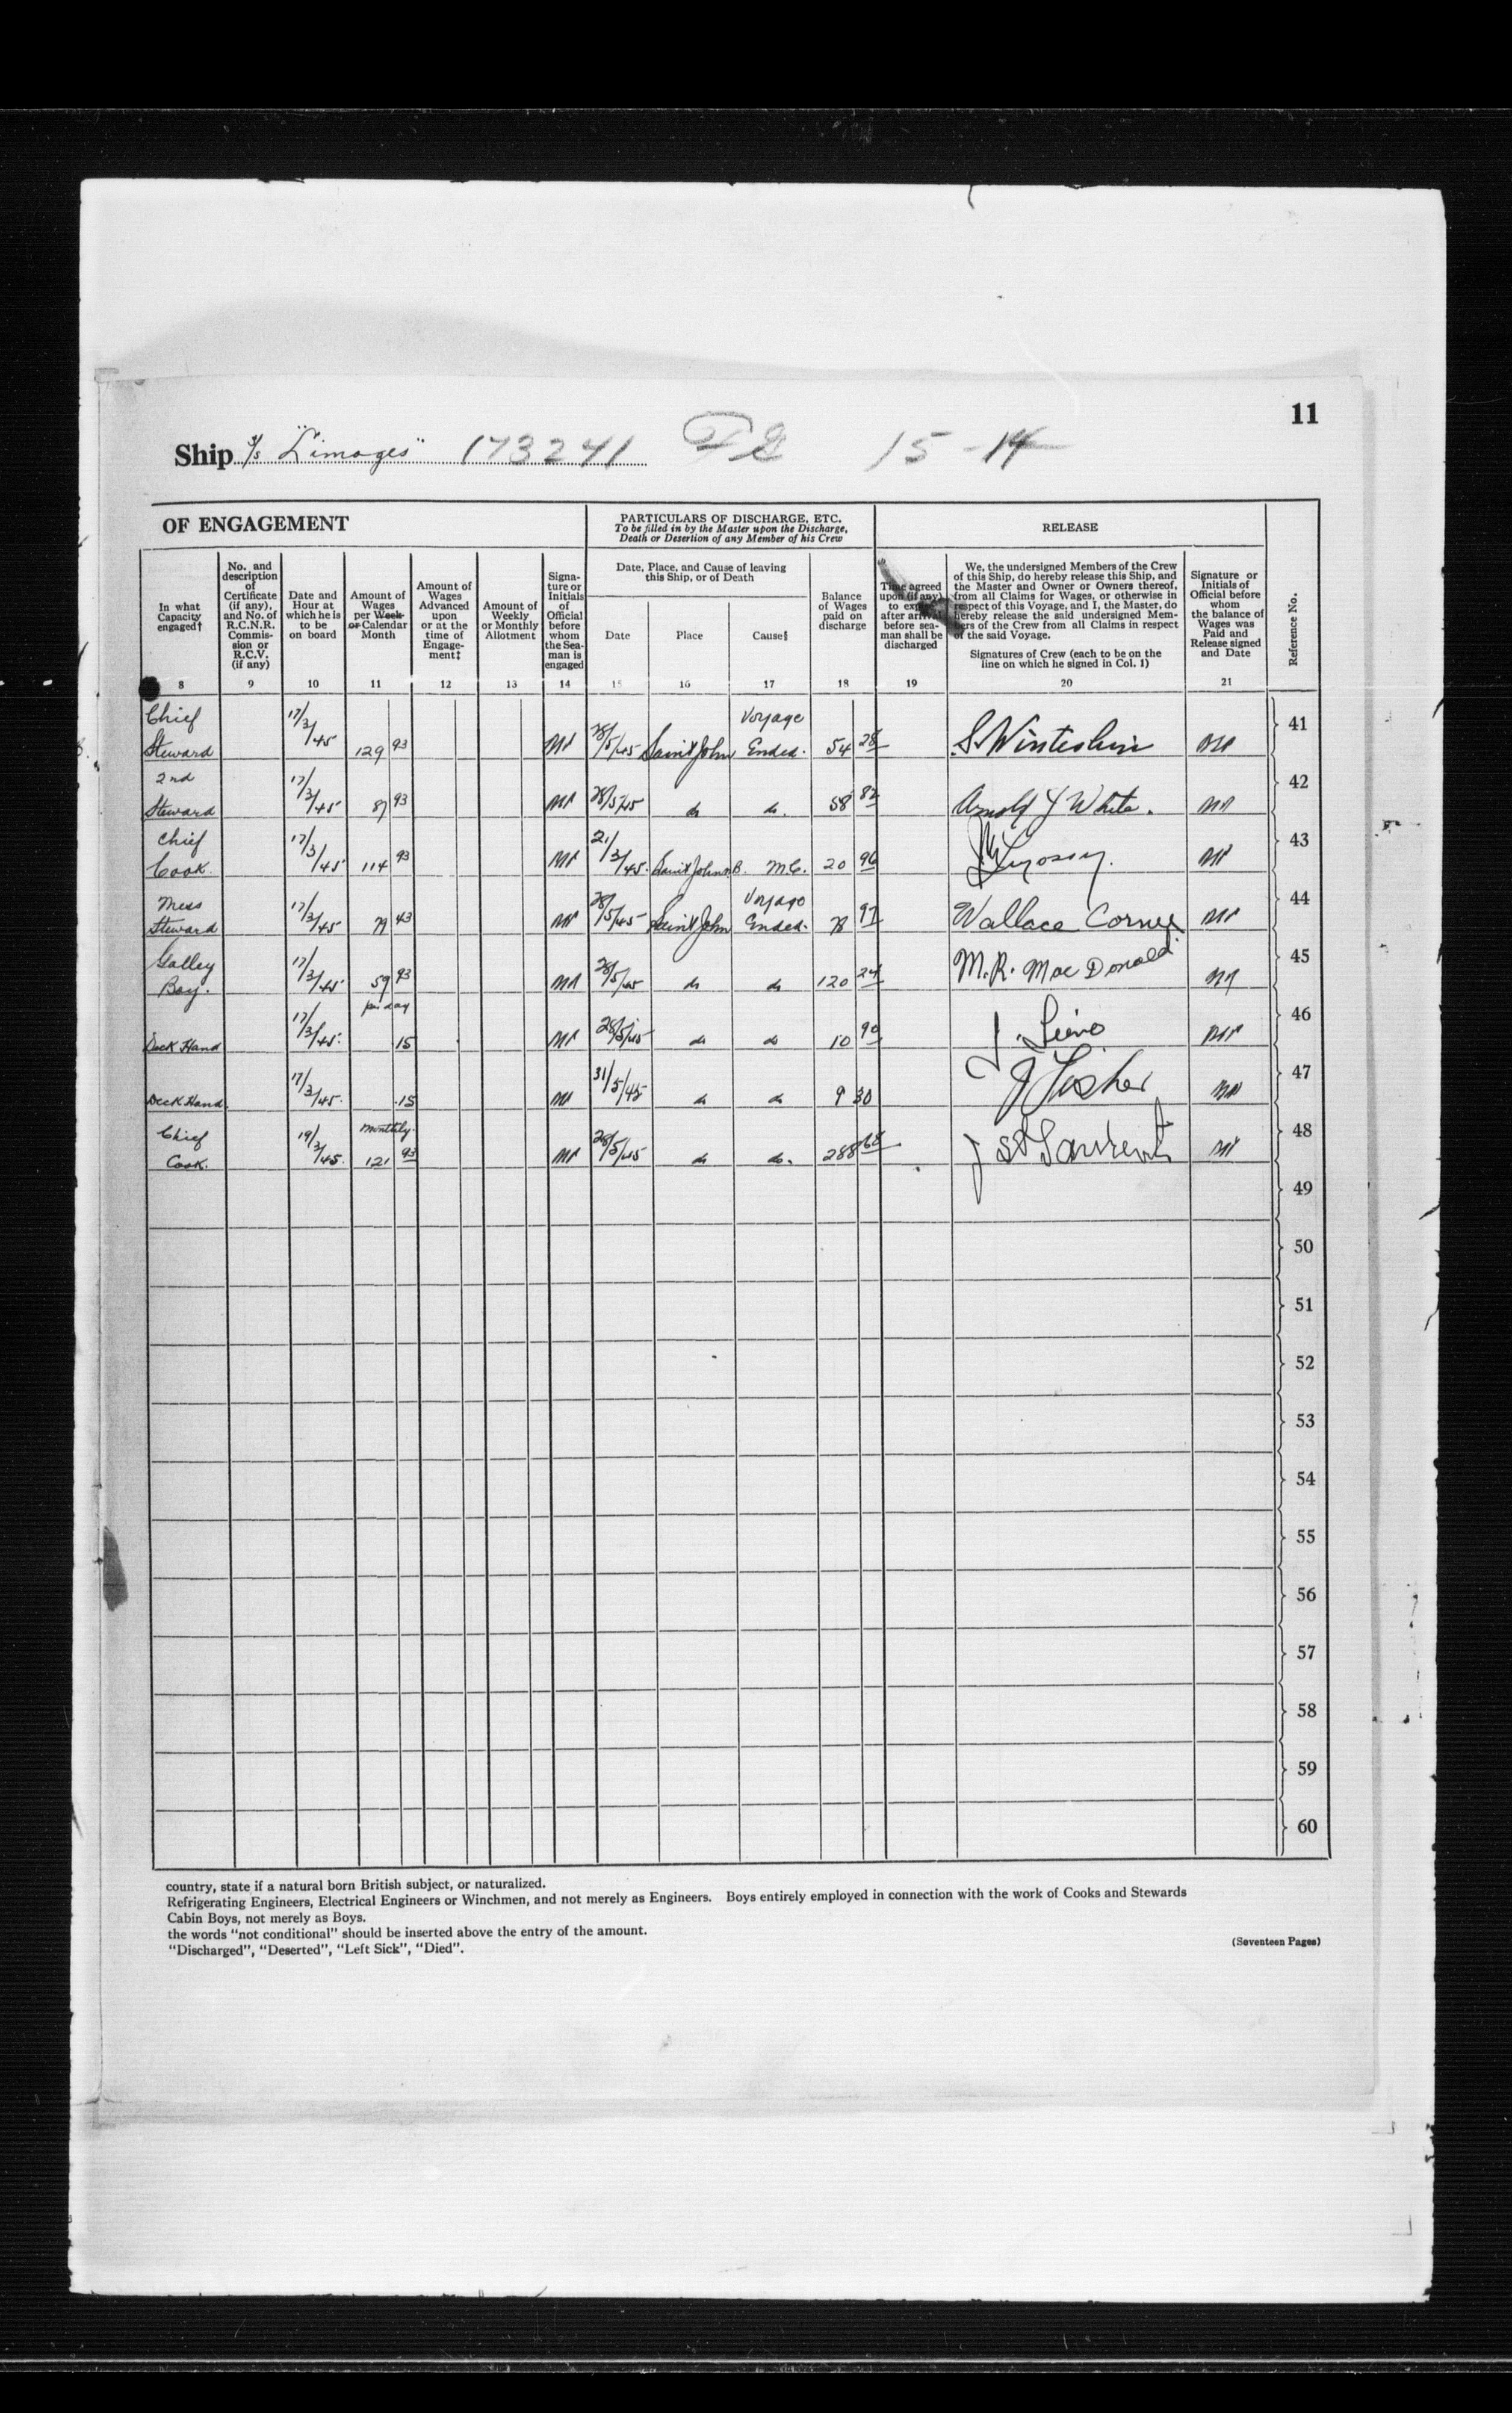 11
Ship s/s "Limoges" 173241 15-14
OF ENGAGEMENT
PARTICULARS OF DISCHARGE, ETC.
To be filled in by the Master upon the Discharge,
Death or Desertion of any Member of his Crew
RELEASE
In what
Capacity
engaged†
No. and
description
of
Certificate
(if any),
and No. of
R.C.N.R.
Commis-
sion or
R.C.V.
(if any)
Date and
Hour at
which he is
to be
on board
Amount of
Wages
per Week
or Calendar
Month
Amount of
Wages
Advanced
upon
or at the
time of
Engage-
ment‡
Amount of
Weekly
or Monthly
Allotment
Signa-
ture or
Initials
of
Official
before
whom
the Sea-
man is
engaged
Date, Place, and Cause of leaving
this Ship, or of Death
Date
Place
Cause§
Balance
of Wages
paid on
discharge
Time agreed
upon (if any)
to expire
after arrival
before sea-
man shall be
discharged
We, the undersigned Members of the Crew
of this Ship, do hereby release this Ship, and
the Master and Owner or Owners thereof,
from all Claims for Wages, or otherwise in
respect of this Voyage, and I, the Master, do
hereby release the said undersigned Mem-
bers of the Crew from all Claims in respect
of the said Voyage.
Signatures of Crew (each to be on the
line on which he signed in Col. 1)
Signature or
Initials of
Official before
whom
the balance of
Wages was
Paid and
Release signed
and Date
Reference No.
8 9 10 11 12 13 14 15 16 17 18 19 20 21
Chief Steward 17/3/45 129 93 28/5/45 Saint John Voyage Ended. 54 28 41
2nd Steward 17/3/45 87 93 28/5/45 do do. 58 82 Arnold J White. 42
Chief Cook. 17/3/45 114 93 21/3/45. Saint John N.B. M.C. 20 96 43
Mess Steward 17/3/45 79 43 28/5/45 Saint John Voyage Ended. 78 97 Wallace Corney 44
Galley Boy. 17/3/45 59 93 28/5/45 do do 120 24 M.R. Mac Donald 45
Deck Hand 17/3/45. per day 15 28/5/45 do do 10 90 46
Deck Hand. 17/3/45. .15 31/5/45 do do 9 30 J Fisher 47
Chief Cook. 19/3/45. monthly. 121 93 28/5/45 do do. 288 68 J St Laurent 48
49
50
51
52
53
54
55
56
57
58
59
60
country, state if a natural born British subject, or naturalized.
Refrigerating Engineers, Electrical Engineers or Winchmen, and not merely as Engineers. Boys entirely employed in connection with the work of Cooks and Stewards
Cabin Boys, not merely as Boys.
the words "not conditional" should be inserted above the entry of the amount.
"Discharged", "Deserted", "Left Sick", "Died".
(Seventeen Pages)